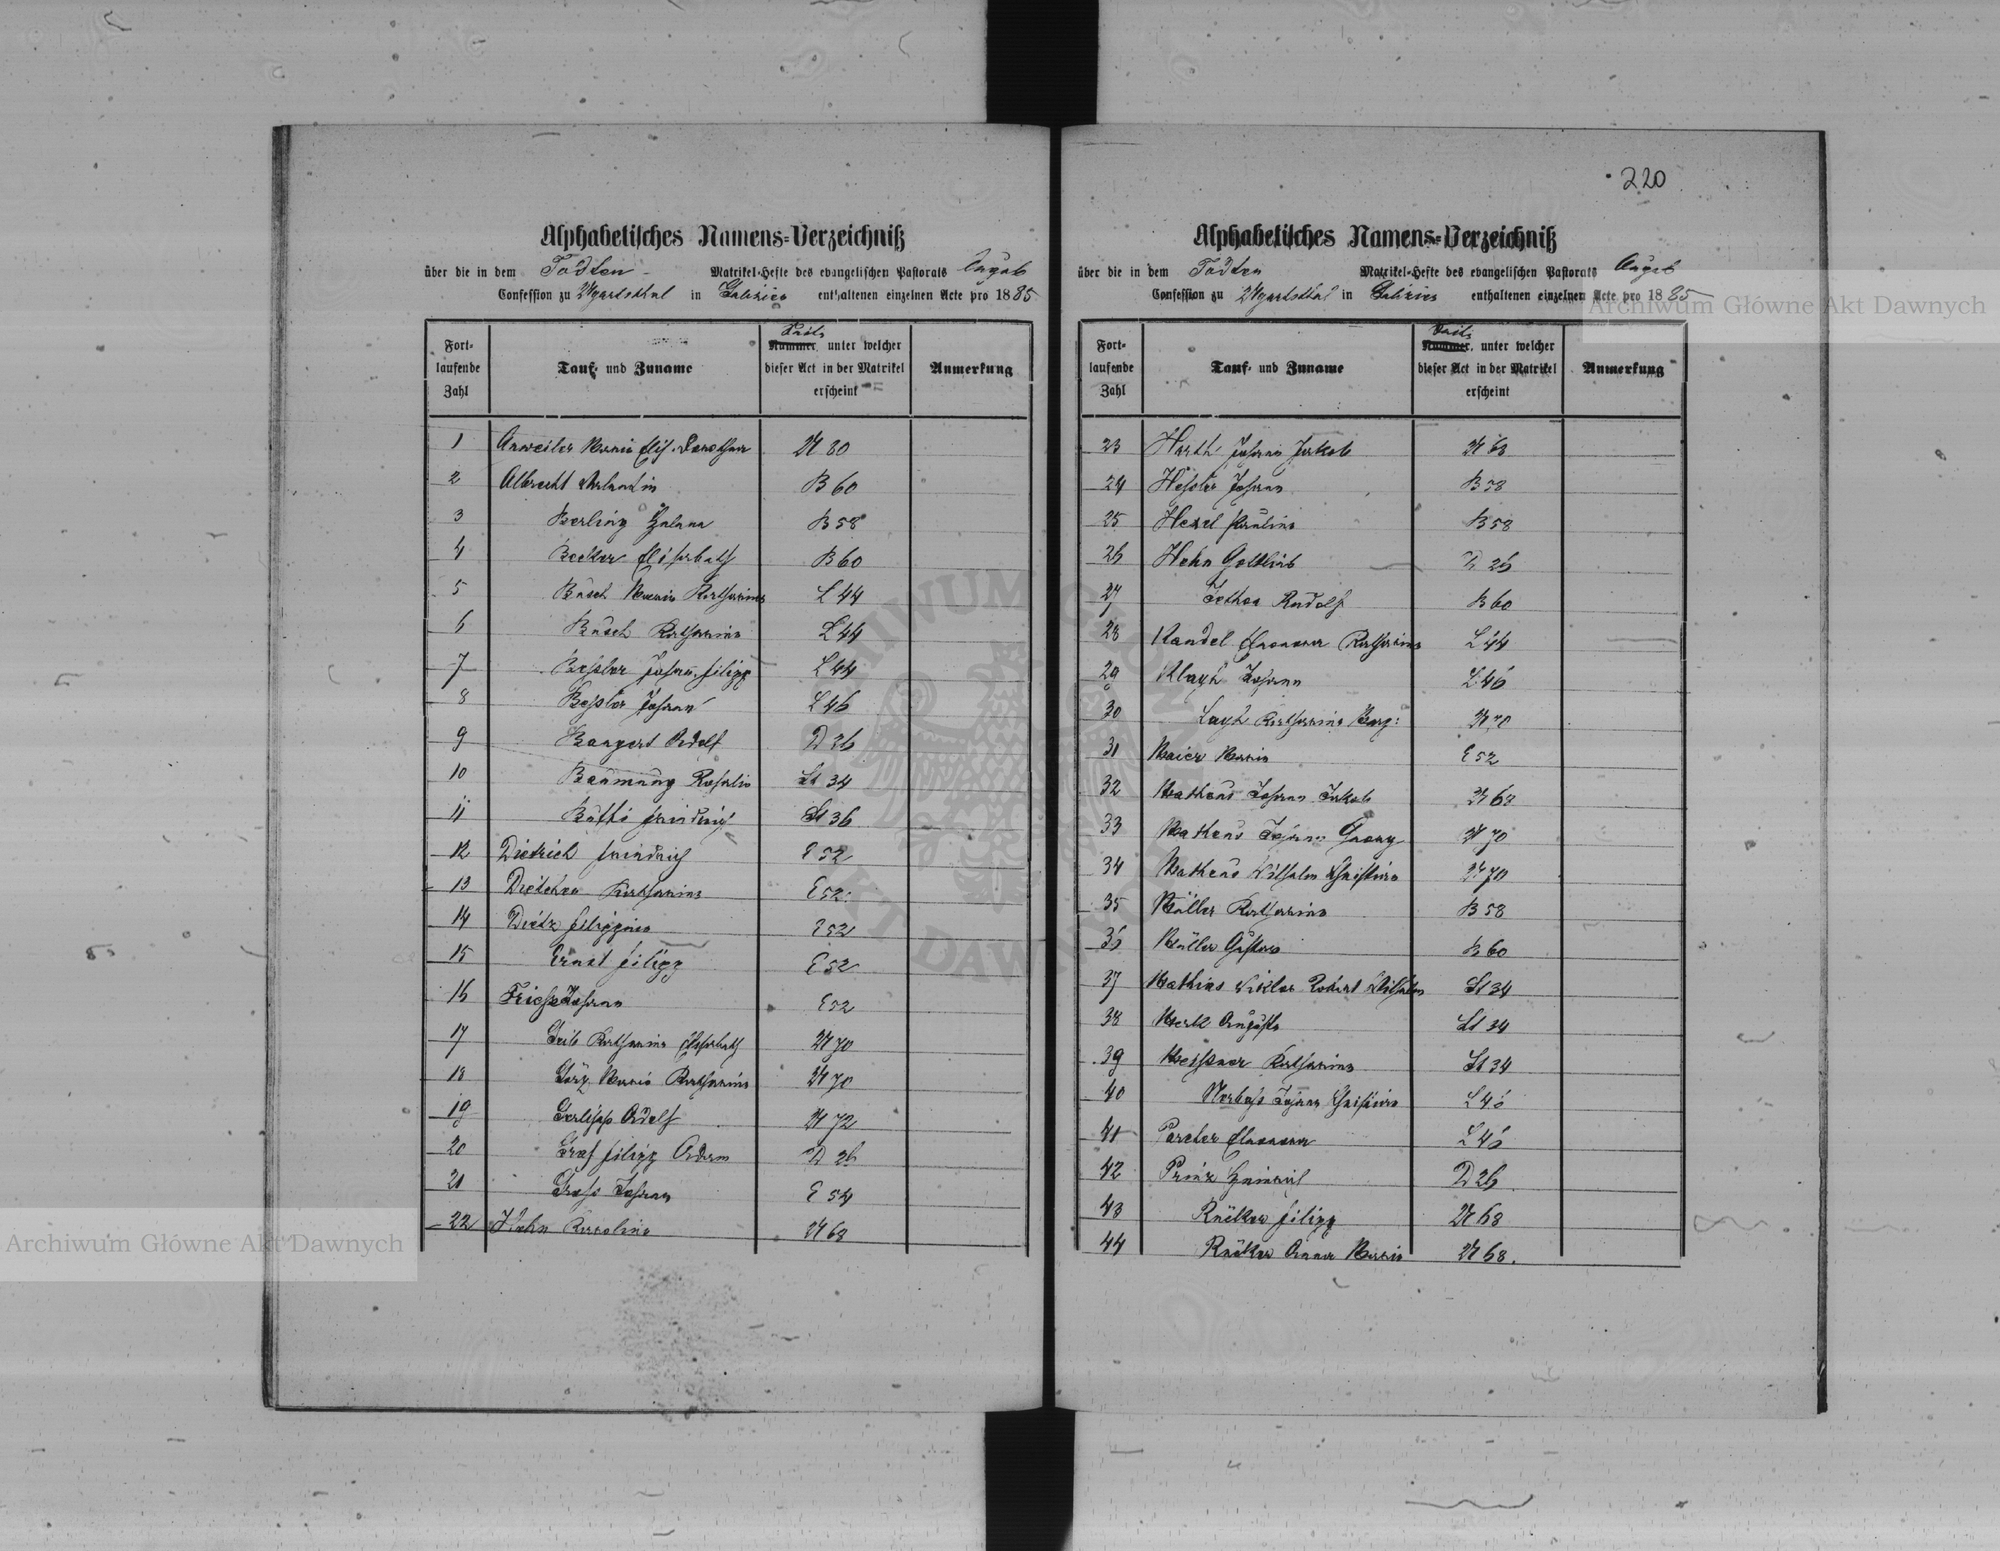 220
Alphabetisches Namens-Verzeichniß
über die in dem Todten Matrikel-Hefte des evangelischen Pastorats Augsb
Confession zu Ugartsthal in Galizien enthaltenen einzelnen Acte pro 1885
Fort-
laufende
Zahl
Tauf- und Zuname
Seite
Nummer, unter welcher
dieser Act in der Matrikel
erscheint
Anmerkung
1 Anweiler Maria Elis. Dorothea U 80
2 Albrecht Valentin B 60
3 Berling Helena B 58
4 Becker Elisabeth B 60
5 Busch Maria Katharina L 44
6 Busch Katharina L 44
7 Bessler Johann Filipp L 44
8 Bessler Johann L 46
9 Bangert Adolf D 26
10 Baumung Rosalia St 34
11 Friedrich St 36
12 Dietrich Friedrich E 52
13 Katharina E 52
14 Dietz Filippina E 52
15 Ernst Filipp E 52
16 Johann E 52
17 Geib Katharina Elisabeth U 70
18 Görz Maria Katharina U 70
19 Adolf U 72
20 Graf Filipp Adam D 26
21 Gross Johann E 54
22 Hahn Karolina U 68
Alphabetisches Namens-Verzeichniß
über die in dem Todten Matrikel-Hefte des evangelischen Pastorats Augsb
Confession zu Ugartsthal in Galizien enthaltenen einzelnen Acte pro 1885
Fort-
laufende
Zahl
Tauf- und Zuname
Seite
Nummer, unter welcher
dieser Act in der Matrikel
erscheint
Anmerkung
23 Harth Johann Jakob U 68
24 Johann B 58
25 Paulina B 58
26 Hahn Gottlieb D 26
27 Rudolf B 60
28 Kandel Eleonora Katharina L 44
29 Johann L 46
30 Katharina Marg: U 70
31 Maier Maria E 52
32 Matheus Johann Jakob U 68
33 Matheus Johann Georg U 70
34 Matheus Wilhelm Christian U 70
35 Müller Katharina B 58
36 Müller Gustav B 60
37 Mathias Viktor Robert Wilhelm St 34
38 Merk Augusta St 34
39 Meissner Katharina St 34
40 Johann Christian L 46
41 Eleonora L 46
42 Prinz Heinrich D 26
43 Filipp U 68
44 Anna Maria U 68.
Archiwum Główne Akt Dawnych
Archiwum Główne Akt Dawnych
ARCHIWUM GŁÓWNE AKT DAWNYCH